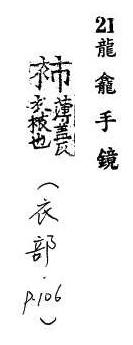 21龍龕手鏡
薄蓋反
也
(衣部.p.106)